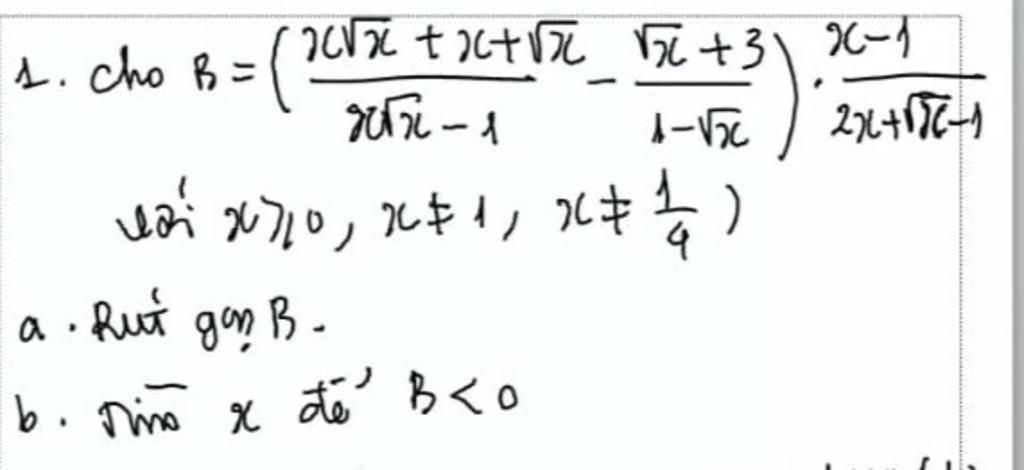 1. Cho B = ( (x√x + x + √x)/(x√x - 1) - (√x + 3)/(1 - √x) ) . (x - 1)/(2x + √x - 1)
với x ≥ 0, x ≠ 1, x ≠ 1/4 )
a. Rút gọn B.
b. Tìm x để B < 0